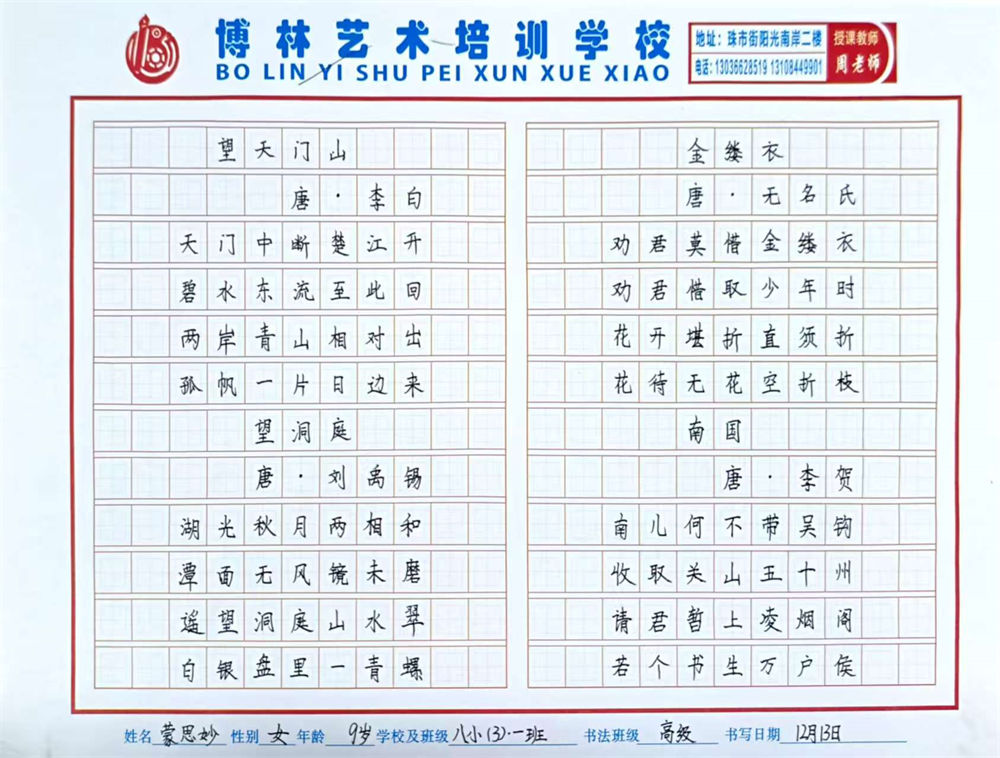 博林艺术培训学校
BO LIN YI SHU PEI XUN XUE XIAO
地址：珠市街阳光南岸二楼
电话：13036628519 13108449901
授课教师
周老师
望天门山
唐·李白
天门中断楚江开
碧水东流至此回
两岸青山相对出
孤帆一片日边来
望洞庭
唐·刘禹锡
湖光秋月两相和
潭面无风镜未磨
遥望洞庭山水翠
白银盘里一青螺
金缕衣
唐·无名氏
劝君莫惜金缕衣
劝君惜取少年时
花开堪折直须折
花待无花空折枝
南国
唐·李贺
南儿何不带吴钩
收取关山五十州
请君暂上凌烟阁
若个书生万户侯
姓名 蒙思妙 性别 女 年龄 9岁 学校及班级 八小(3)·一班 书法班级 高级 书写日期 12月13日